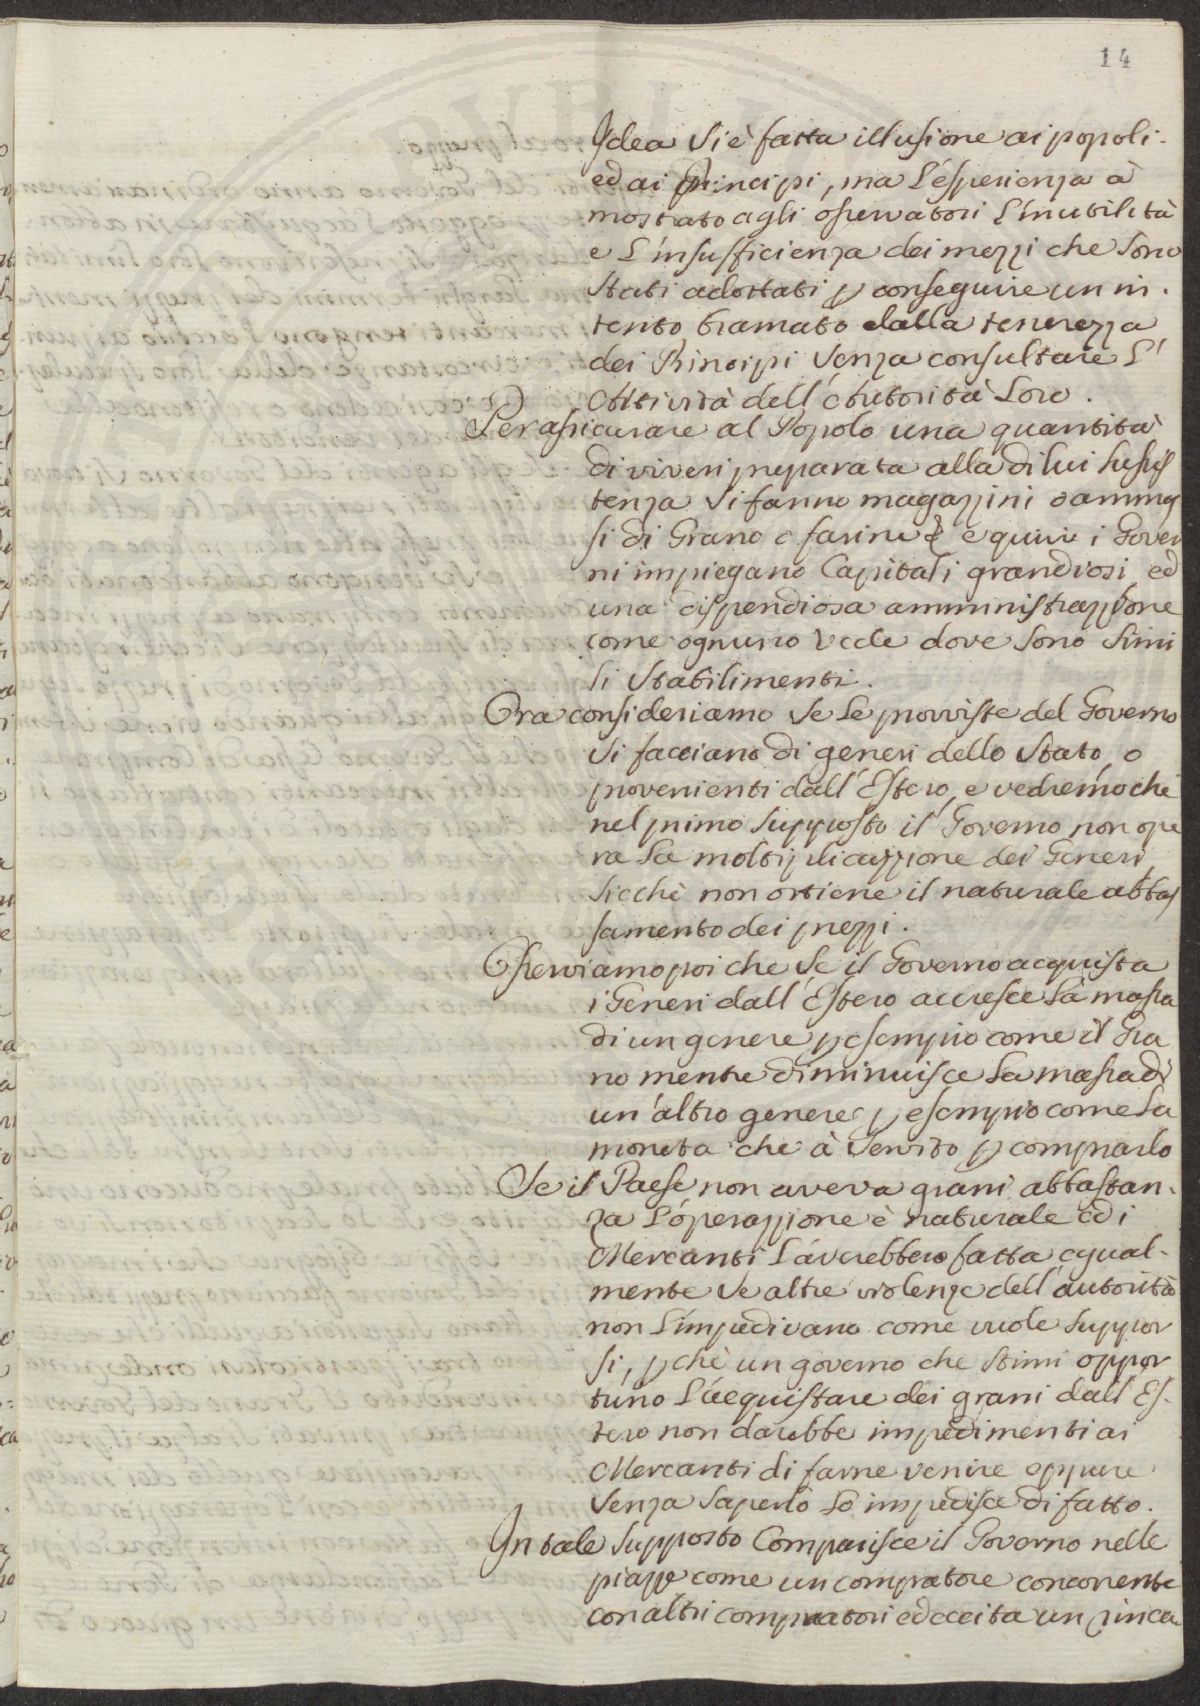 14
Idea si è fatta illusione ai popoli
ed ai Principi, ma l'esperienza à
mostrato agli osservatori l'inutilità
e l'insufficienza dei mezzi che sono
stati adottati p conseguire un in-
tento bramato dalla tenerezza
dei Principi senza consultare l'
Attività dell'Autorità loro.
Per assicurare al Popolo una quantità
di viveri preparata alla di lui sussis
tenza si fanno magazzini o ammas
si di Grano o farine & e quivi i Gover
ni impiegano Capitali grandiosi ed
una dispendiosa amministrazzione
come ognuno vede dove sono simi
li stabilimenti.
Ora consideriamo se le provviste del Governo
si facciano di generi dello stato, o
provenienti dall'Estero, e vedremo che
nel primo supposto il Governo non ope
ra la moltiplicazzione dei Generi
sicchè non ottiene il naturale abbas
samento dei prezzi.
Osserviamo poi che se il Governo acquista
i Generi dall'Estero accresce la massa
di un genere p esempio come il Gra
no mentre diminuisce la massa di
un'altro genere p esempio come la
moneta che à servito p comprarlo
Se il Paese non aveva grani abbastan-
za l'operazzione è naturale ed i
Mercanti l'averebbero fatta egual-
mente se altre violenze dell'autorità
non l'impedivano come vuole suppor
si, p chè un governo che stimi oppor
tuno l'acquistare dei grani dall'Es-
tero non darebbe impedimenti ai
Mercanti di farne venire oppure
senza saperlo lo impedisce di fatto.
In tale supposto Comparisce il Governo nelle
piazze come un compratore concorrente
con altri compratori ed eccita un rinca